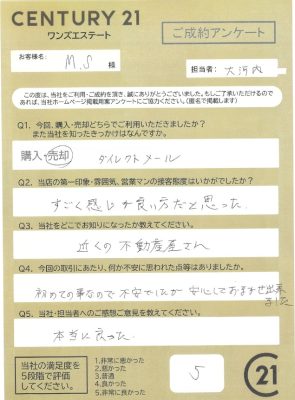 CENTURY 21
ワンズエステート
ご成約アンケート
お客様名:
M.S 様
担当者: 大河内
この度は、当社をご利用・ご成約を頂き、誠にありがとうございました。もしご了承いただけるので
あれば、当社ホームページ掲載用アンケートにご協力ください。(匿名で掲載します)
Q1. 今回、購入・売却どちらでご利用いただきましたか?
また当社を知ったきっかけはなんですか。
購入・売却 ダイレクトメール
Q2. 当店の第一印象・雰囲気、営業マンの接客態度はいかがでしたか?
すごく感じが良い方だと思った
Q3. 当社をどこでお知りになったか教えてください。
近くの不動産屋さん
Q4. 今回の取引にあたり、何か不安に思われた点等はありましたか。
初めての事なので不安でしたが安心しておまかせ出来
ました
Q5. 当社・担当者へのご感想ご意見を教えてください。
本当に良った
当社の満足度を
5段階で評価
してください。
1.非常に悪かった
2.悪かった
3.普通
4.良かった
5.非常に良かった
5
C21